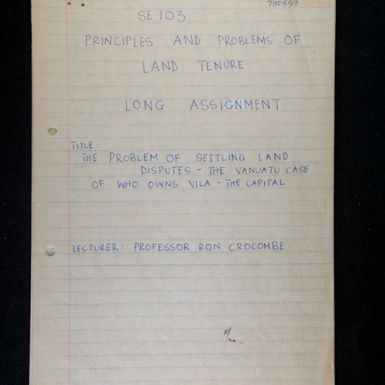 790559
SE 103
PRINCIPLES AND PROBLEMS OF
LAND TENURE
LONG ASSIGNMENT
TITLE:
THE PROBLEM OF SETTLING LAND
DISPUTES - THE VANUATU CASE
OF WHO OWNS VILA - THE CAPITAL
LECTURER: PROFESSOR RON CROCOMBE